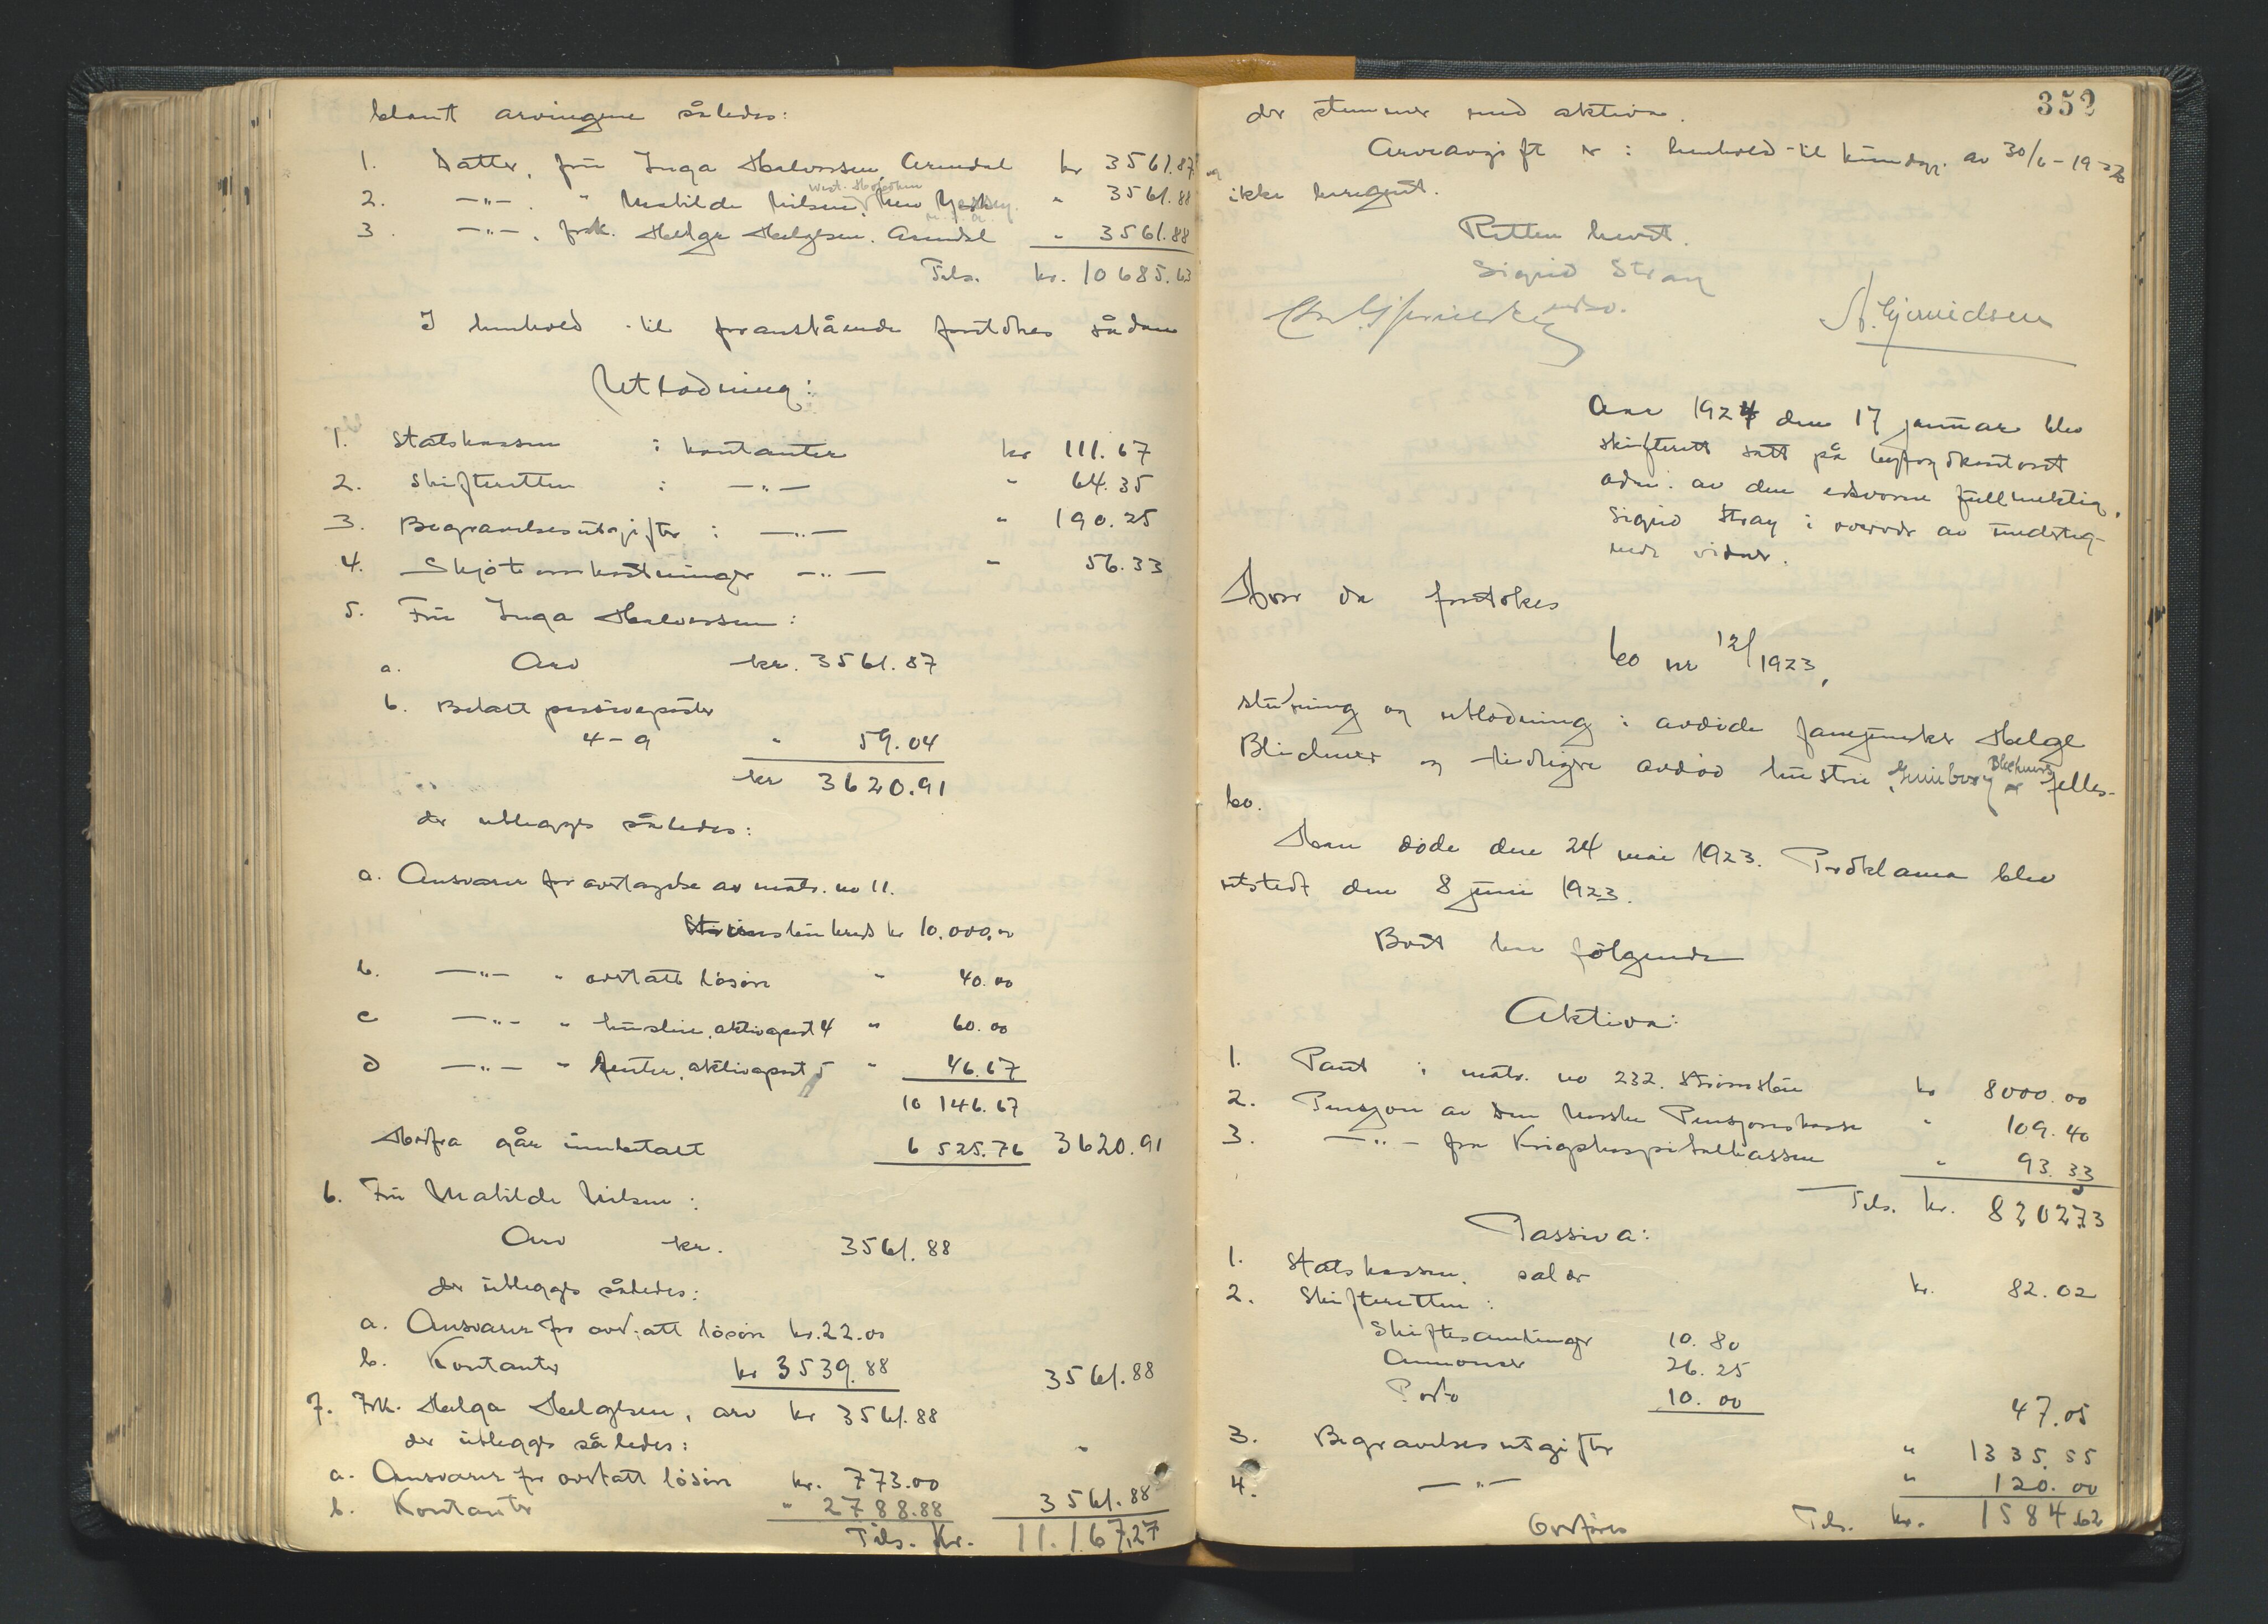 blant arvingene således:
1. Datter, fru Inga Halvorsen, Arendal kr 3561.87
2. —"— " Matilde Nilsen, West Hoboken New Yersey " 3561.88
3. —"—, frk. Helga Helgesen, Arendal " 3561.88
Tils. kr. 10685.63
I henhold til foranstående foretokes sådan
Utlodning:
1. Statskassen i kontanter kr 111.67
2. Skifteretten i —"— " 64.35
3. Begravelsesutgifter i —"— " 190.25
4. Skjøteomkostninger —"— " 56.33
5. Fru Inga Halvorsen:
a. Arv kr. 3561.87
b. Betalt passivaposter
4-9 " 59.04
kr 3620.91
der utlegges således:
a. Ansvaret for overtagelse av matr. no 11.
kr 10.000.00
b. —"— " overtatt løsøre " 40.00
c —"— " husleie, aktivapost 4 " 60.00
d —"— " Renter, aktivapost 5 " 46.67
10 146.67
Herfra går innbetalt 6 525.76 3620.91
6. Fru Matilde Nilsen:
Arv kr. 3561.88
der utlegges således:
a. Ansvaret for overtatt løsøre kr. 22.00
b. Kontanter kr 3539.88 3561.88
7. Frk. Helga Helgesen, arv kr 3561.88
der utlegges således:
a. Ansvaret for overtatt løsøre kr. 773.00
b. Kontanter " 2788.88 3561.88
Tils. Kr. 11.167,27
352
der stemmer med aktiva.
Arveavgift er i henhold til kundgj. av 30/6-1922
ikke beregnet.
Retten hevet.
Sigrid Stray
edsv.
A. Gjeruldsen
Aar 1924 den 17 januar blev
skifterett satt på byfogdkontoret
adm. av den edsvorne fullmektig,
Sigrid Stray i overvær av underteg-
nede vidner.
Hvor da foretokes
bo nr 12/1923,
slutning og utlodning i avdøde fanejunker Helge
Blichner og tidligere avdød hustru, Gunborg Blichners felles-
bo.
Han døde den 24 mai 1923. Proklama blev
utstedt den 8 juni 1923.
Boet har følgende
Aktiva:
1. Pant i matr. no 232. Strømsbu kr 8000.00
2. Pensjon av Den Norske Pensjonskasse " 109.40
3. —"— fra Krigshospitalkassen " 93.33
Tils. kr. 8202,73
Passiva:
1. Statskassen, salær kr. 82.02
2. Skifteretten:
Skiftesamlinger 10.80
Annonser 26.25
Porto 10.00 47.05
3. Begravelsesutgifter " 1335.55
4. —"— " 120.00
Overføres Tils. kr. 1584.62